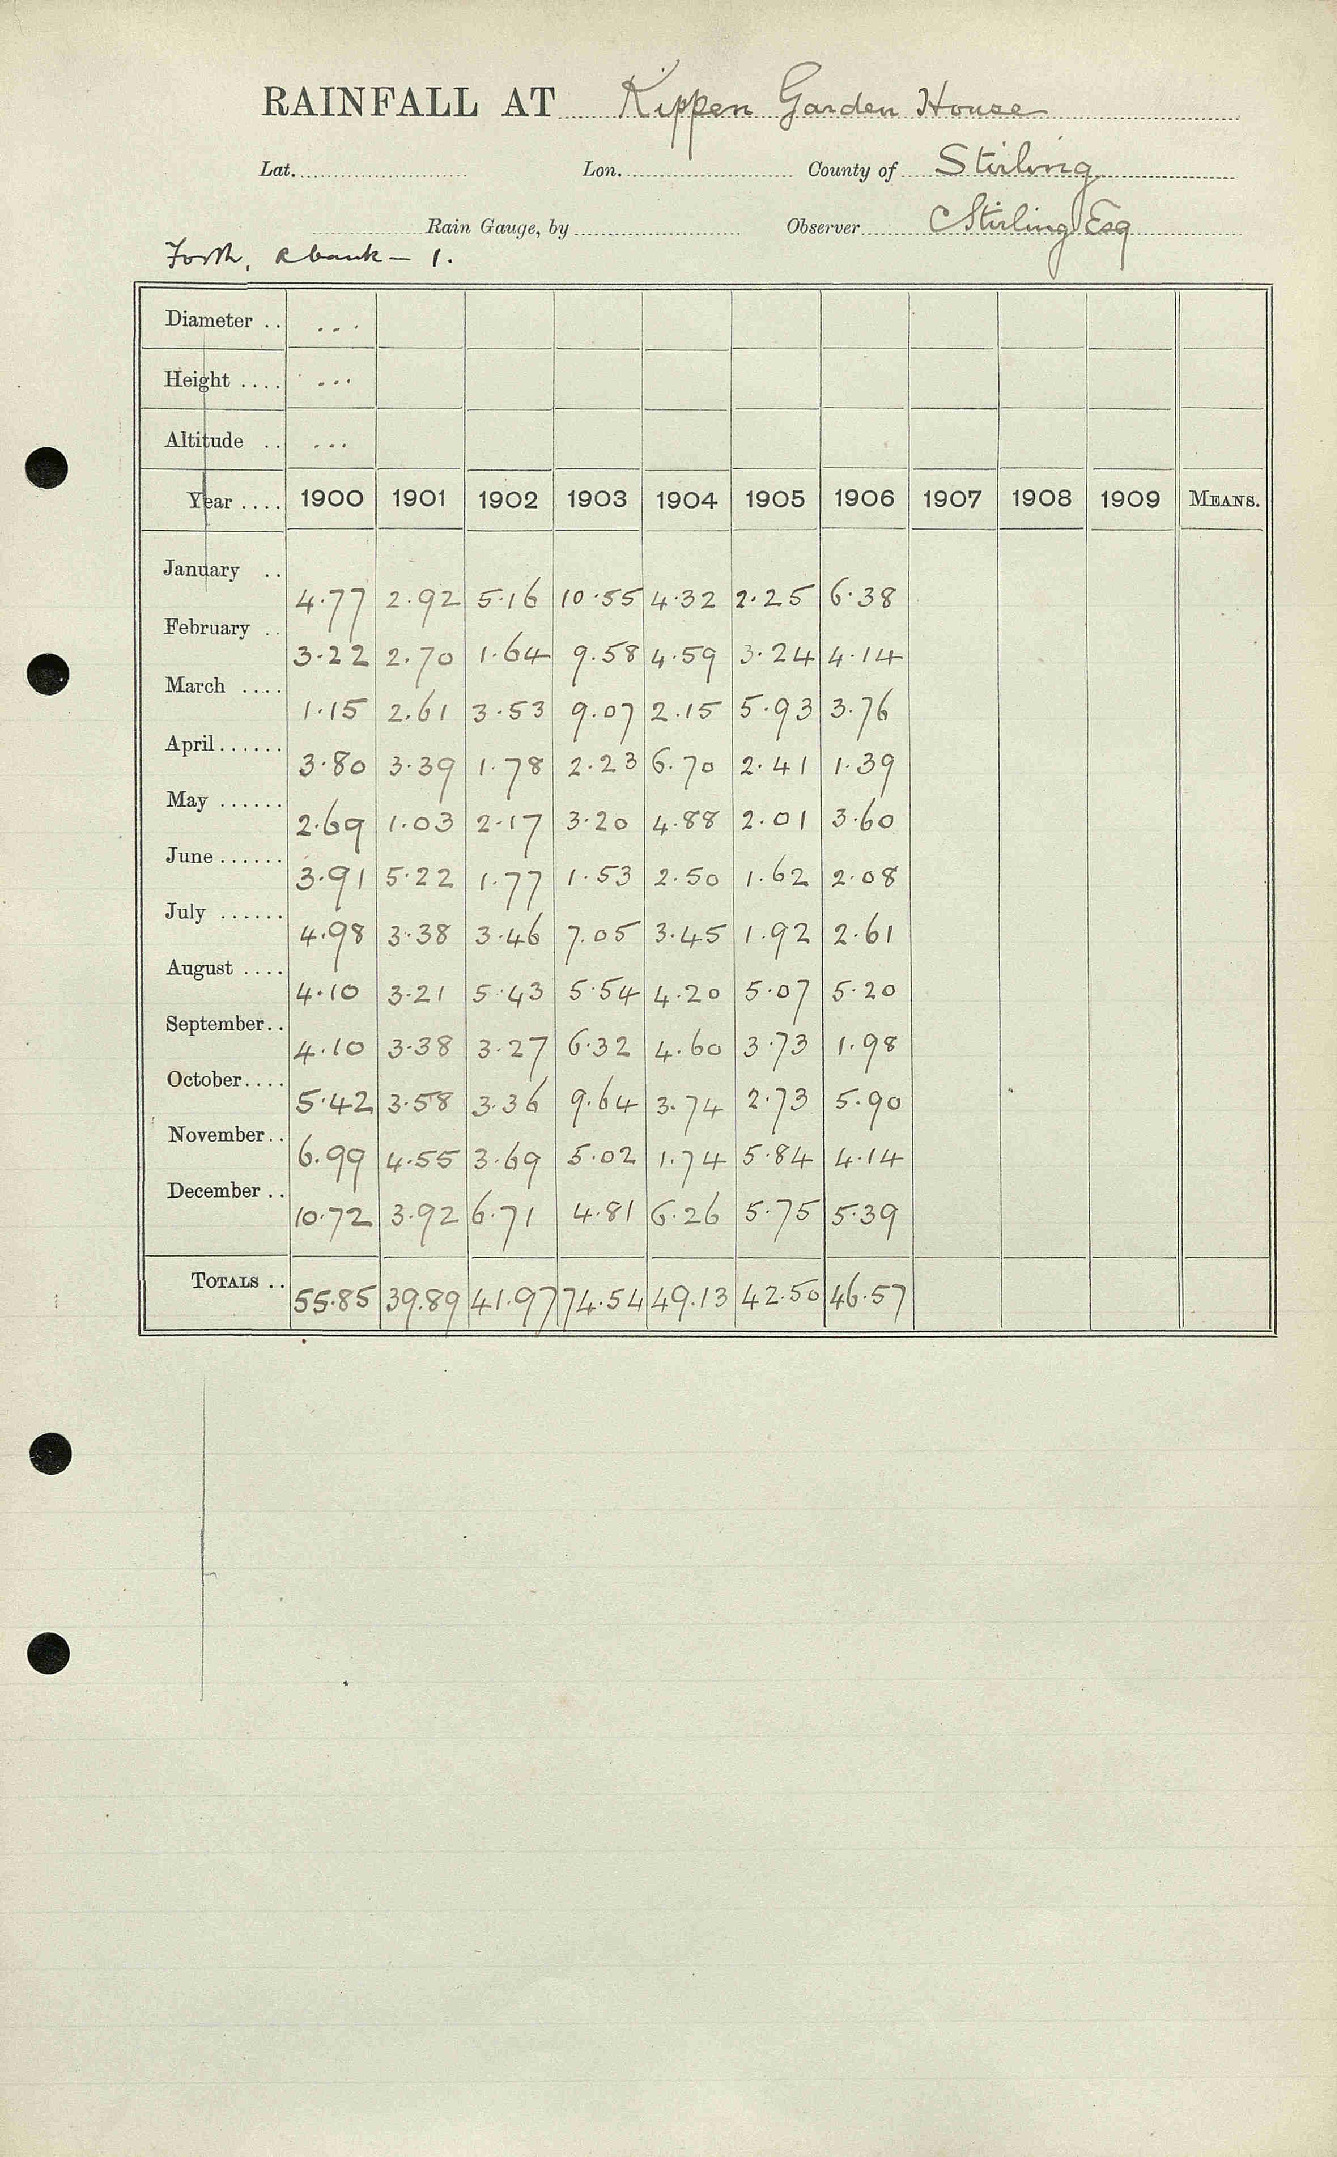 RAINFALL AT Kippen Garden House
Lat. Lon. County of Stirling
Rain Gauge, by Observer C Stirling Esq
Forth, R bank - 1.
Diameter .. ...
Height .... ...
Altitude .. ...
Year .... 1900 1901 1902 1903 1904 1905 1906 1907 1908 1909 MEANS.
January .. 4.77 2.92 5.16 10.55 4.32 2.25 6.38
February .. 3.22 2.70 1.64 9.58 4.59 3.24 4.14
March .... 1.15 2.61 3.53 9.07 2.15 5.93 3.76
April...... 3.80 3.39 1.78 2.23 6.70 2.41 1.39
May ...... 2.69 1.03 2.17 3.20 4.88 2.01 3.60
June ...... 3.91 5.22 1.77 1.53 2.50 1.62 2.08
July ...... 4.98 3.38 3.46 7.05 3.45 1.92 2.61
August .... 4.10 3.21 5.43 5.54 4.20 5.07 5.20
September.. 4.10 3.38 3.27 6.32 4.60 3.73 1.98
October.... 5.42 3.58 3.36 9.64 3.74 2.73 5.90
November.. 6.99 4.55 3.69 5.02 1.74 5.84 4.14
December .. 10.72 3.92 6.71 4.81 6.26 5.75 5.39
TOTALS .. 55.85 39.89 41.97 74.54 49.13 42.50 46.57